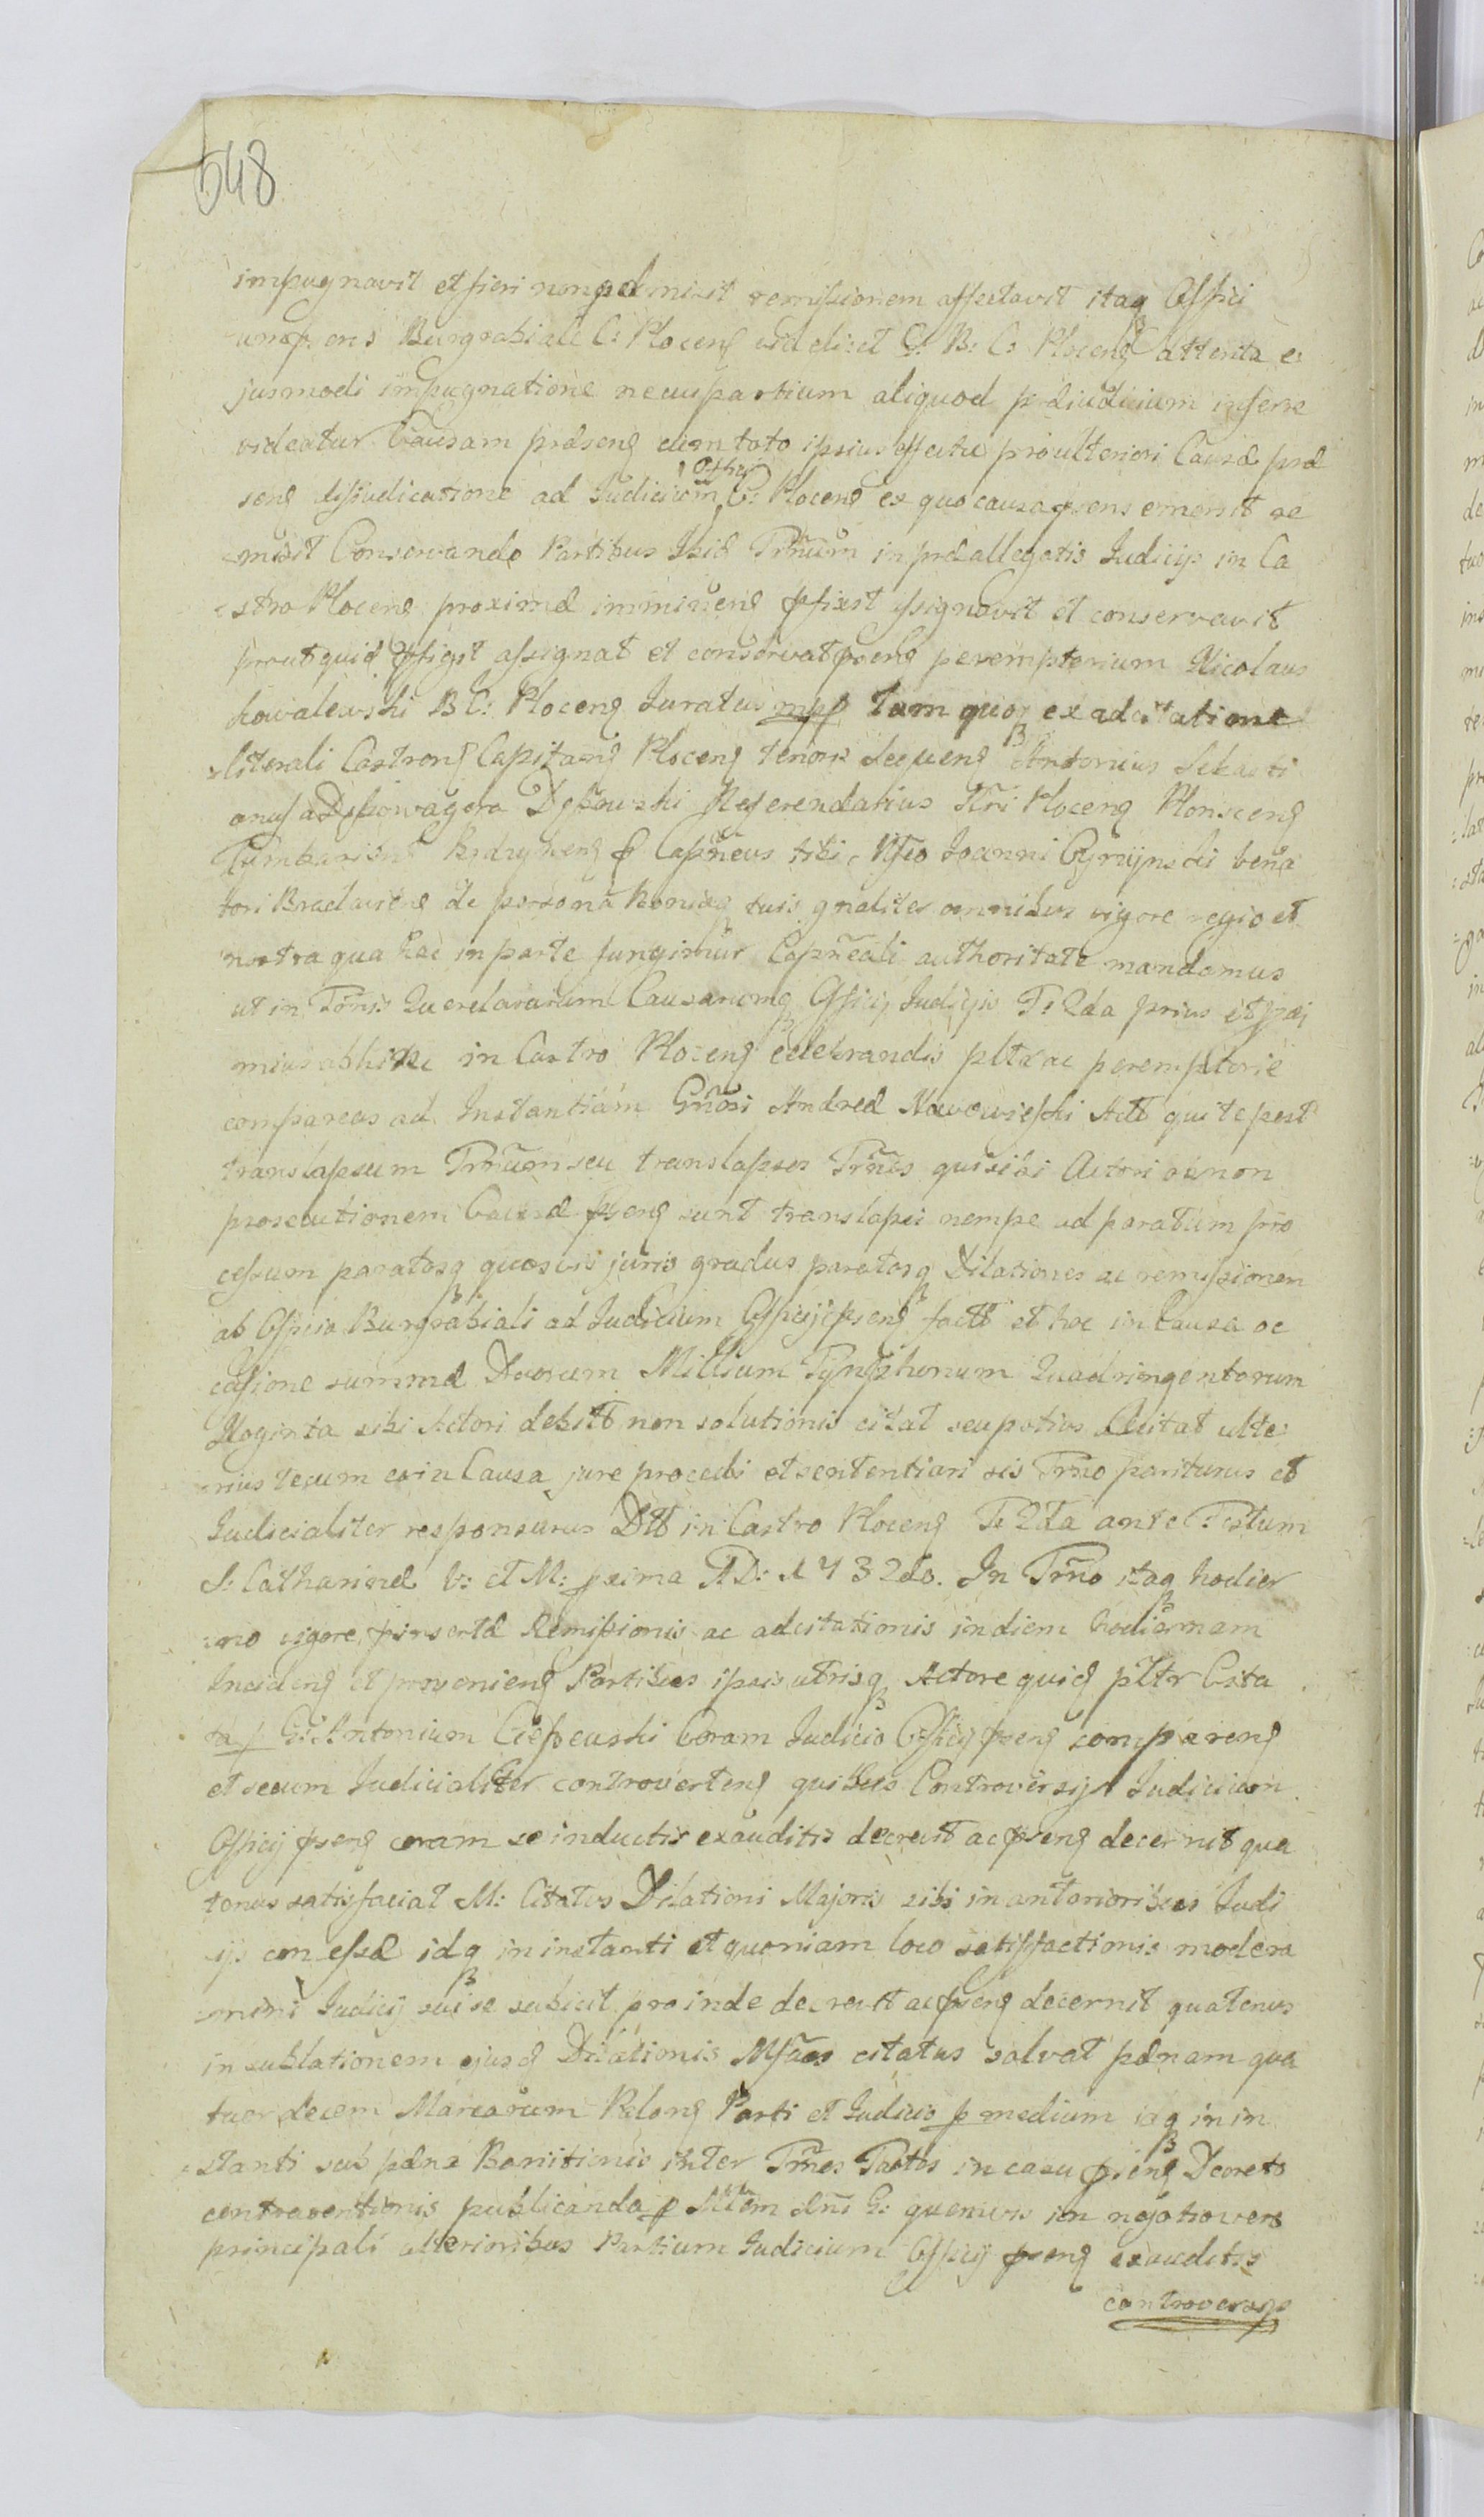 548
impugnavit et fieri non admisit remissionem affectavit itaq Offici
um pñs Burgrabiale C: Plocens videlicet G: B: C: Plocens attenta e
jusmodi impugnatione ne cuipartium aliquod præiudicium inferre
videatur Causam præsens cum toto ipsius effectu pro ulteriori Causæ præ
sens disiudicatione ad Iudicium Offij C: Plocens ex quo causa psens emersit re
misit Conservando Partibus Trñum in præallegatis Iudicijs in Ca
stro Plocens proximè imminens pfixit assignavit et conservavit
prout quid pfigit assignat et conservat psens peremptorium Nicolaus
Kowalewski B C: Plocens Iuratus mpp Tum quoq ex adcitatione
literali Castrens Capitans Plocens tenoris sequens Antonius Sebasti
anus a Dessowagora Referendarius Tři Plocens Plonscens
 Capñeus tibi Mfco Ioanni bena
tori de persona bonisq tuis gnaliter omnibus vigore regio et
nostra qua hac in parte fungimur Capñeali authoritate mandamus
ut in Trñis Querelarum Causarumq Officij Iudicijs Fr 2da prius et proxi
mius abhinc in Castro Plocens celebrandis pltr ac peremptorie
compareas ad Instantiam Gñosi Andreæ Nawowieyski Act qui te post
translapsum Trñum seu translapsos Trños qui sibi Actori ob non
prosecutionem Causæ psens sunt translapsi nempe ad paratum pro
cessum paratosq quosvis juris gradus paratasq Dilationes ac remissionem
ab Officio Burgrabiali ad Iudicium Officij psens fact et hoc in Causa oc
casione summæ Duorum Millium Tynphonum Quadringentorum
 sibi Actori debit non solutionis citat seu potius adcitat ulte
rius tecum ea in Causa jure procedi et sententiari sis Trño pariturus et
Iudicialiter responsurus Dtt in Castro Plocens Fr 2da ante Festum
S: Catharinæ V: et M: prima A D: 1732do. In Trño itaq hodier
no vigore pinsertæ Remissionis ac adcitationis in diem hodiernam
Incidens et proveniens Partibus ipsis utrisq Actore quid pltr Cita
to p G: Antonium Coram Iudicio Officij psens comparens
et secum Iudicialiter controvertens quibus Controversijs Iudicium
Officij psens coram se inductis exauditis decrevit ac psens decernit qua
tenus satisfaciat M: Citatus Dilationi Majoris sibi in anterioribus Iudi
ijs concessæ idq in instanti et quoniam loco satisfactionis modera
mini Iudicij sui se subicit proinde decrevit ac psens decernit quatenus
in sublationem ejusd Dilationis Mfcus citatus solvat pænam qua
tuordecem Marcarum Polons Parti et Iudicio p medium idq in in
stanti sub pæna Bannitionis inter Trños Tactos in casu psens Decreto
contraventionis publicanda p Mtem dñi G: quemvis in negotio vero
principali ulterioribus Partium Iudicium Officij psens exauditis
controversijs